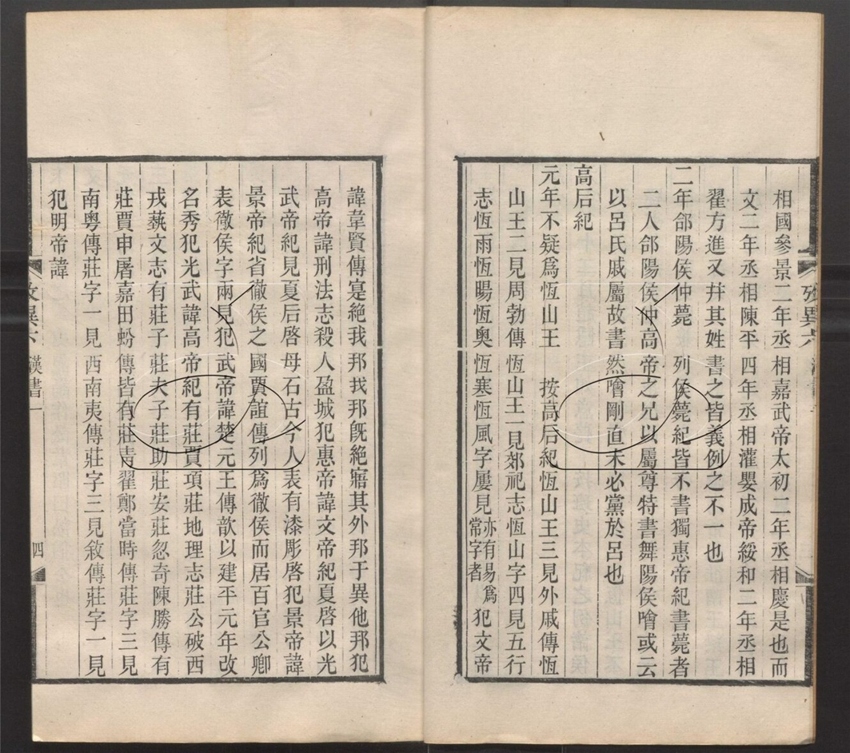 相國參景二年丞相嘉武帝太初二年丞相慶是也而
文二年丞相陳平四年丞相灌嬰成帝綏和二年丞相
翟方進又幷其姓書之皆義例之不一也
二年郃陽侯仲薨　列侯薨紀皆不書獨惠帝紀書薨者
二人郃陽侯仲高帝之兄以屬尊特書舞陽侯噲或云
以呂氏戚屬故書然噲剛直未必黨於呂也
高后紀
元年不疑爲恆山王　按高后紀恆山王三見外戚傳恆
山王二見周勃傳恆山王一見郊祀志恆山字四見五行
志恆雨恆暘恆奧恆寒恆風字屢見亦有易爲常字者犯文帝
諱韋賢傳寔絕我邦我邦旣絕賔其外邦于異他邦犯
高帝諱刑法志殺人盈城犯惠帝諱文帝紀夏啓以光
武帝紀見夏后啓母石古今人表有漆彫啓犯景帝諱
景帝紀省徹侯之國賈誼傳列爲徹侯而居百官公卿
表徹侯字兩見犯武帝諱楚元王傳歆以建平元年改
名秀犯光武諱高帝紀有莊賈項莊地理志莊公破西
戎蓺文志有莊子莊夫子莊助莊安莊忽奇陳勝傳有
莊賈申屠嘉田蚡傳皆有莊靑翟鄭當時傳莊字三見
南粵傳莊字一見西南夷傳莊字三見敘傳莊字一見
犯明帝諱
攷異六　漢書一
四